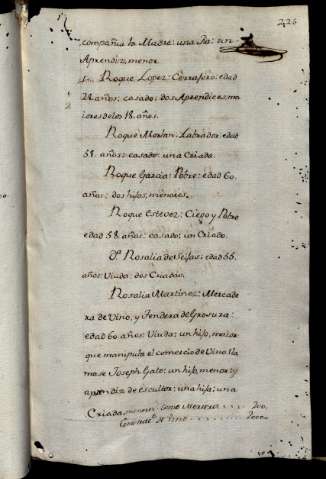 226
compañia la Madre: una Per: un
Aprendiz, menor
Roque Lopez: Cerragero: edad
24 años: casado: dos Aprendices, ma
iores de los 18. años.
Roque Moran: Labrador: edad
51. años: casado: una Criada
Roque Garcia: Pobre: edad 60
años: dos hijos, menores.
Roque Estevez: Ciego y Pobre
edad 58. años: casado: un Criado.
Dª Rosalia de Seijas: edad 55.
años: Viuda: dos Criadas.
Rosalia Martinez: Mercade
ra de Vino, y Tendera de Grosura:
edad 60 años: Viuda: un hijo, maior
que manipula el comercio de Vino lla
mase Joseph Gato: un hijo, menor, y
aprendiz de Escultor: una hija: una
Criada